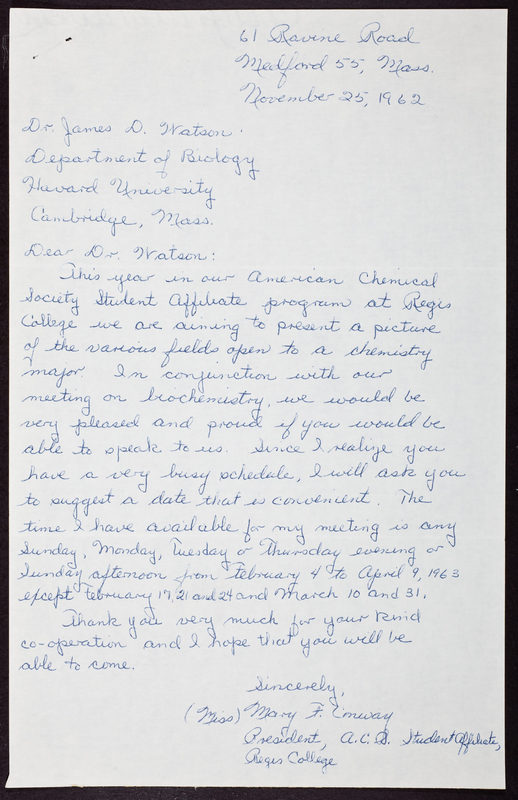 61 Ravine Road
Medford 55, Mass.
November 25, 1962
Dr. James D. Watson
Department of Biology
Havard University
Cambridge, Mass.
Dear Dr. Watson:
This year in our American Chemical
Society Student Affiliate program at Regis
College we are aiming to present a picture
of the various fields open to a chemistry
major. In conjunction with our
meeting on biochemistry, we would be
very pleased and proud if you would be
able to speak to us. Since I realize you
have a very busy schedule, I will ask you
to suggest a date that is convenient. The
time I have available for my meeting is any
Sunday, Monday, Tuesday or Thursday evening or
Sunday afternoon from February 4 to April 9, 1963
except February 17, 21 and 24 and March 10 and 31.
Thank you very much for your kind
co-operation and I hope that you will be
able to come.
Sincerely,
(Miss) Mary F. Conway
President, A.C.S. Student Affiliate,
Regis College